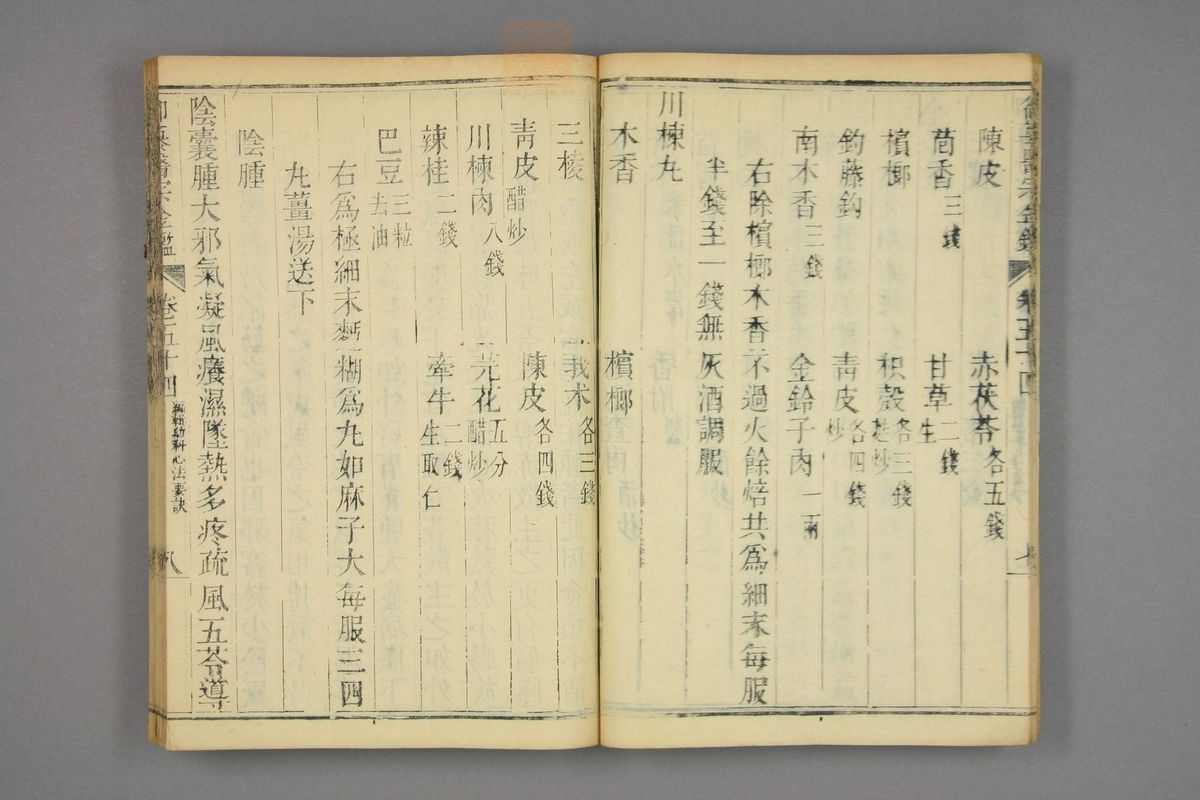 御纂醫宗金鑑 卷五十四 七
陳皮 赤茯苓各五錢
茴香三錢 甘草生二錢
檳榔 枳殼麩炒各三錢
鈎藤鈎 青皮炒各四錢
南木香三錢 金鈴子肉一兩
右除檳榔木香不過火餘焙共爲細末每服
半錢至一錢無灰酒調服
川楝丸
木香 檳榔
三棱 莪术各三錢
青皮醋炒 陳皮各四錢
川楝肉八錢 芫花醋炒五分
辣桂二錢 牽牛生取仁二錢
巴豆去油三粒
右爲極細末麪糊爲丸如麻子大每服三四
丸薑湯送下
陰腫
陰囊腫大邪氣凝風癢濕墜熱多疼疏風五苓導
御纂醫宗金鑑 卷五十四 編輯幼科心法要訣 八